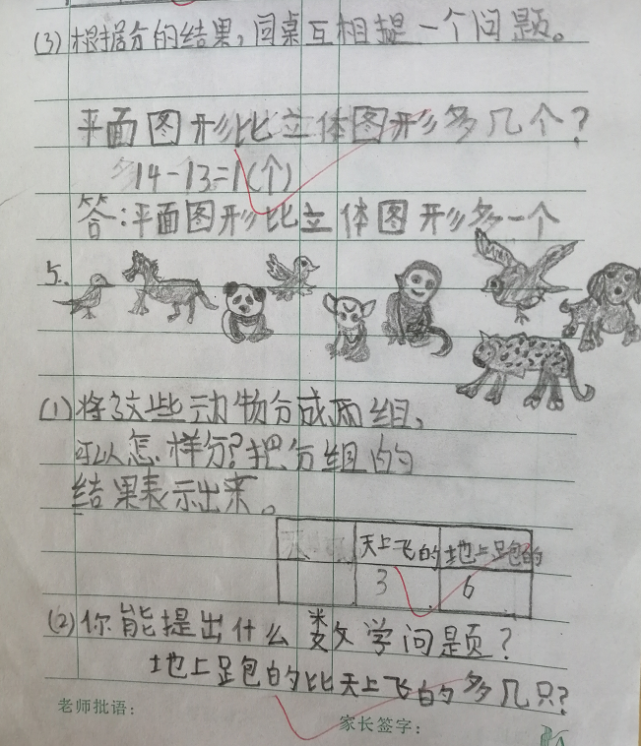 (3)根据分的结果,同桌互相提一个问题。
平面图形比立体图形多几个?
14-13=1(个)
答:平面图形比立体图形多一个
5.
(1)将这些动物分成两组,
可以怎样分?把分组的
结果表示出来。
天上飞的 地上跑的
3 6
(2)你能提出什么数学问题?
地上跑的比天上飞的多几只?
老师批语: 家长签字: